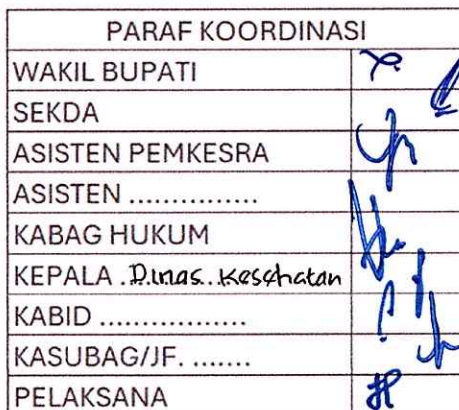 PARAF KOORDINASI
WAKIL BUPATI
SEKDA
ASISTEN PEMKESRA
ASISTEN ...............
KABAG HUKUM
KEPALA .Dinas..Kesehatan
KABID .................
KASUBAG/JF. .......
PELAKSANA